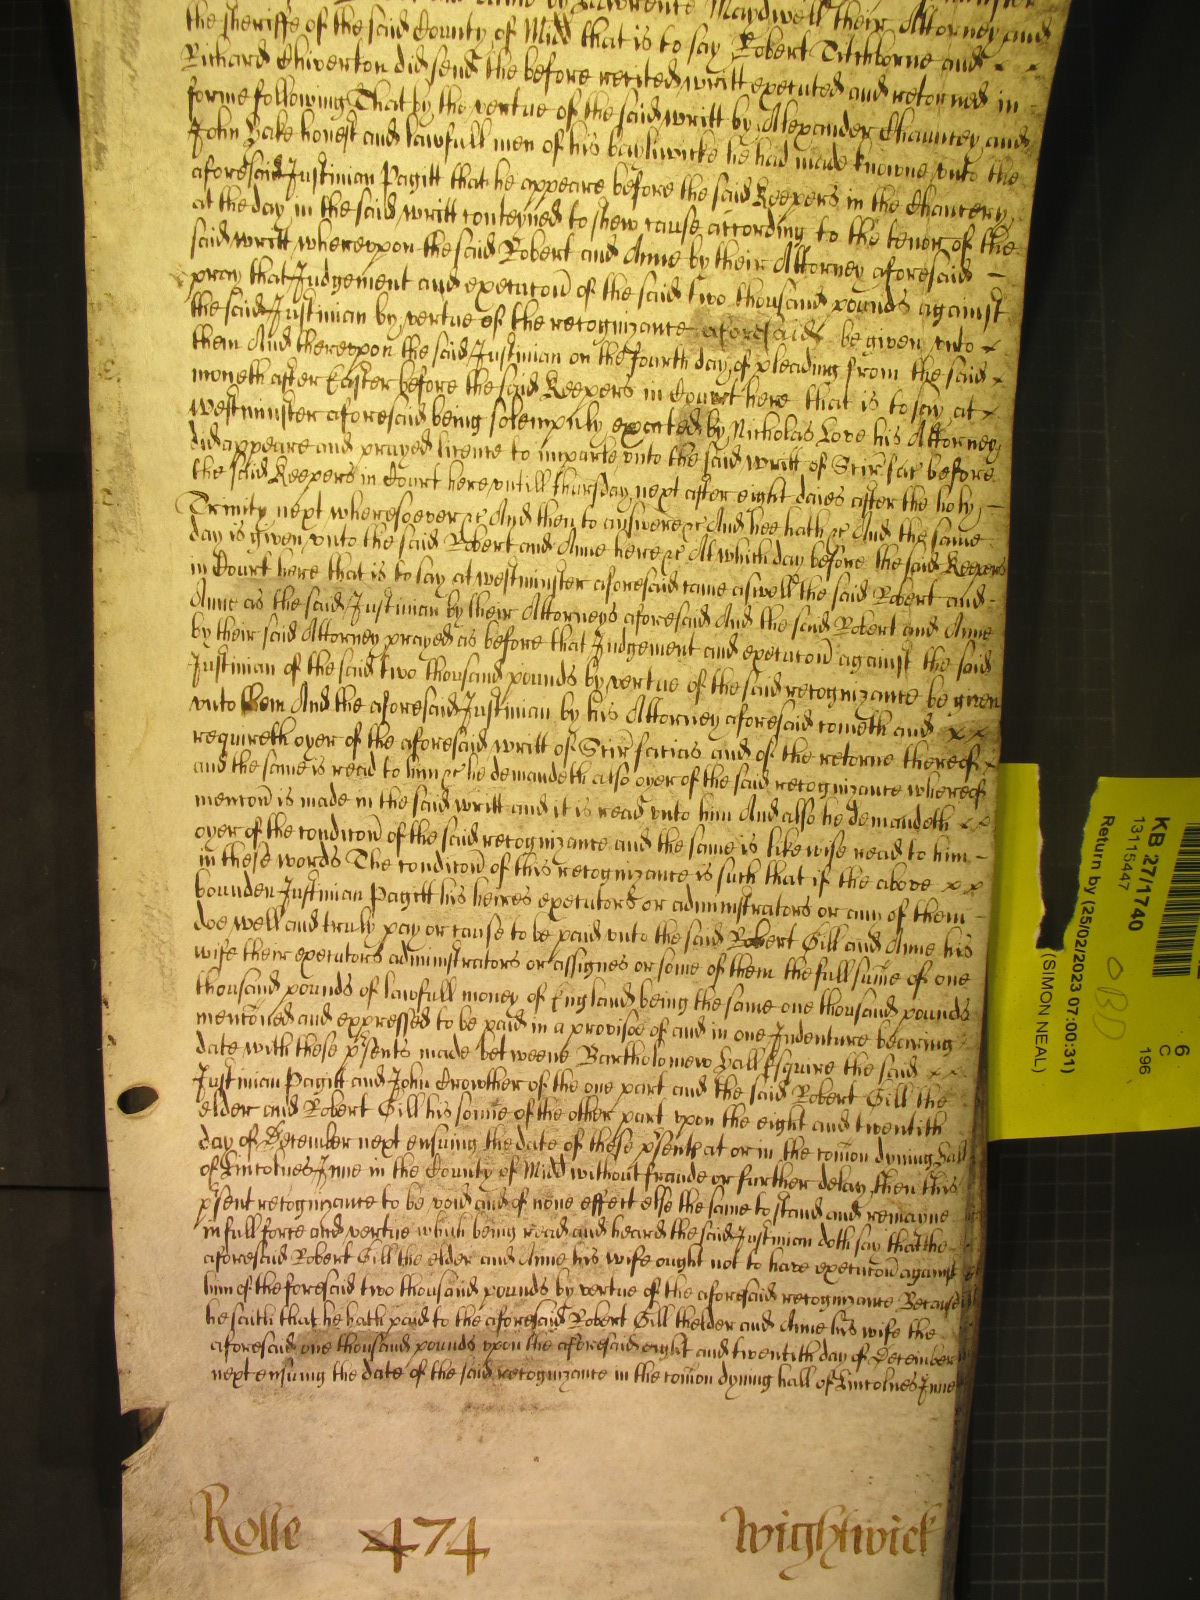 Anne by Lawrence Maydwell their Attorney and
the sheriffe of the said County of Midd that is to say Robert Titchborne and
Richard Chiverton did send the before recited writt executed and retorned in
forme following That by the vertue of the said writt by Alexander Chauncey and
John Hake honest and lawfull men of his bayliwicke he had made knowne unto the
aforesaid Justinian Pagitt that he appeare before the said Keepers in the Chancery
at the day in the said writt conteyned to shew cause according to the tenor of the
said writt whereupon the said Robert and Anne by their Attorney aforesaid
pray that Judgement and execucon of the said two thousand pounds against
the said Justinian by vertue of the recognizance aforesaid be given unto
them And thereupon the said Justinian on the Fourth day of pleading from the said
moneth after Easter before the said Keepers in Court here that is to say at
Westminster aforesaid being solempnly exacted by Nicholas Love his Attorney
did appeare and prayed licence to imparle unto the said writt of Scir fac before
the said Keepers in Court here untill Thursday next after eight daies after the holy
Trinity next wheresoever &c And then to answere &c And hee hath &c And the same
day is given unto the said Robert and Anne here &c At which day before the said Keepers
in Court here that is to say at Westminster aforesaid came aswell the said Robert and
Anne as the said Justinian by their Attorneys aforesaid And the said Robert and Anne
by their said Attorney prayed as before that Judgement and execucon against the said
Justinian of the said two thousand pounds by vertue of the said recognizance be given
unto them And the aforesaid Justinian by his Attorney aforesaid cometh and
requireth oyer of the aforesaid writt of Scir facias and of the retorne thereof
and the same is read to him &c he demandeth also oyer of the said recognizance whereof
mencon is made in the said writt and it is read unto him And also he demandeth
oyer of the condicon of the said recognizance and the same is likewise read to him
in these words The condicon of this recognizance is such that if the above
bounden Justinian Pagitt his heires executors or administrators or any of them
doe well and truly pay or cause to be paid unto the said Robert Gill and Anne his
wife their executors administrators or assignes or some of them the full sume of one
thousand pounds of lawfull money of England being the same one thousand pounds
menconed and expressed to be paid in a provisoe of and in one Indenture bearing
date with these psents made betweene Bartholomew Hall Esquire the said
Justinian Pagitt and John Crowther of the one part and the said Robert Gill the
elder and Robert Gill his sonne of the other part upon the eight and twentith
day of December next ensuing the date of these psents at or in the comon dyning hall
of Lincolnes Inne in the County of Midd without fraude or further delay then this
psent recognizance to be void and of none effect else the same to stand and remayne
in full force and vertue which being read and heard the said Justinian doth say that the
aforesaid Robert Gill the elder and Anne his wife ought not to have execucon against
him of the foresaid two thousand pounds by vertue of the aforesaid recognizance Because
he saith that he hath paid to the aforesaid Robert Gill thelder and Anne his wife the
aforesaid one thousand pounds upon the aforesaid eight and twentith day of December
next ensuing the date of the said recognizance in the comon dyning hall of Lincolnes Inne
Rolle 474 Wightwick
KB 27/1740
13115447
Return by (25/02/2023 07:00:31)
(SIMON NEAL)
6
C
196